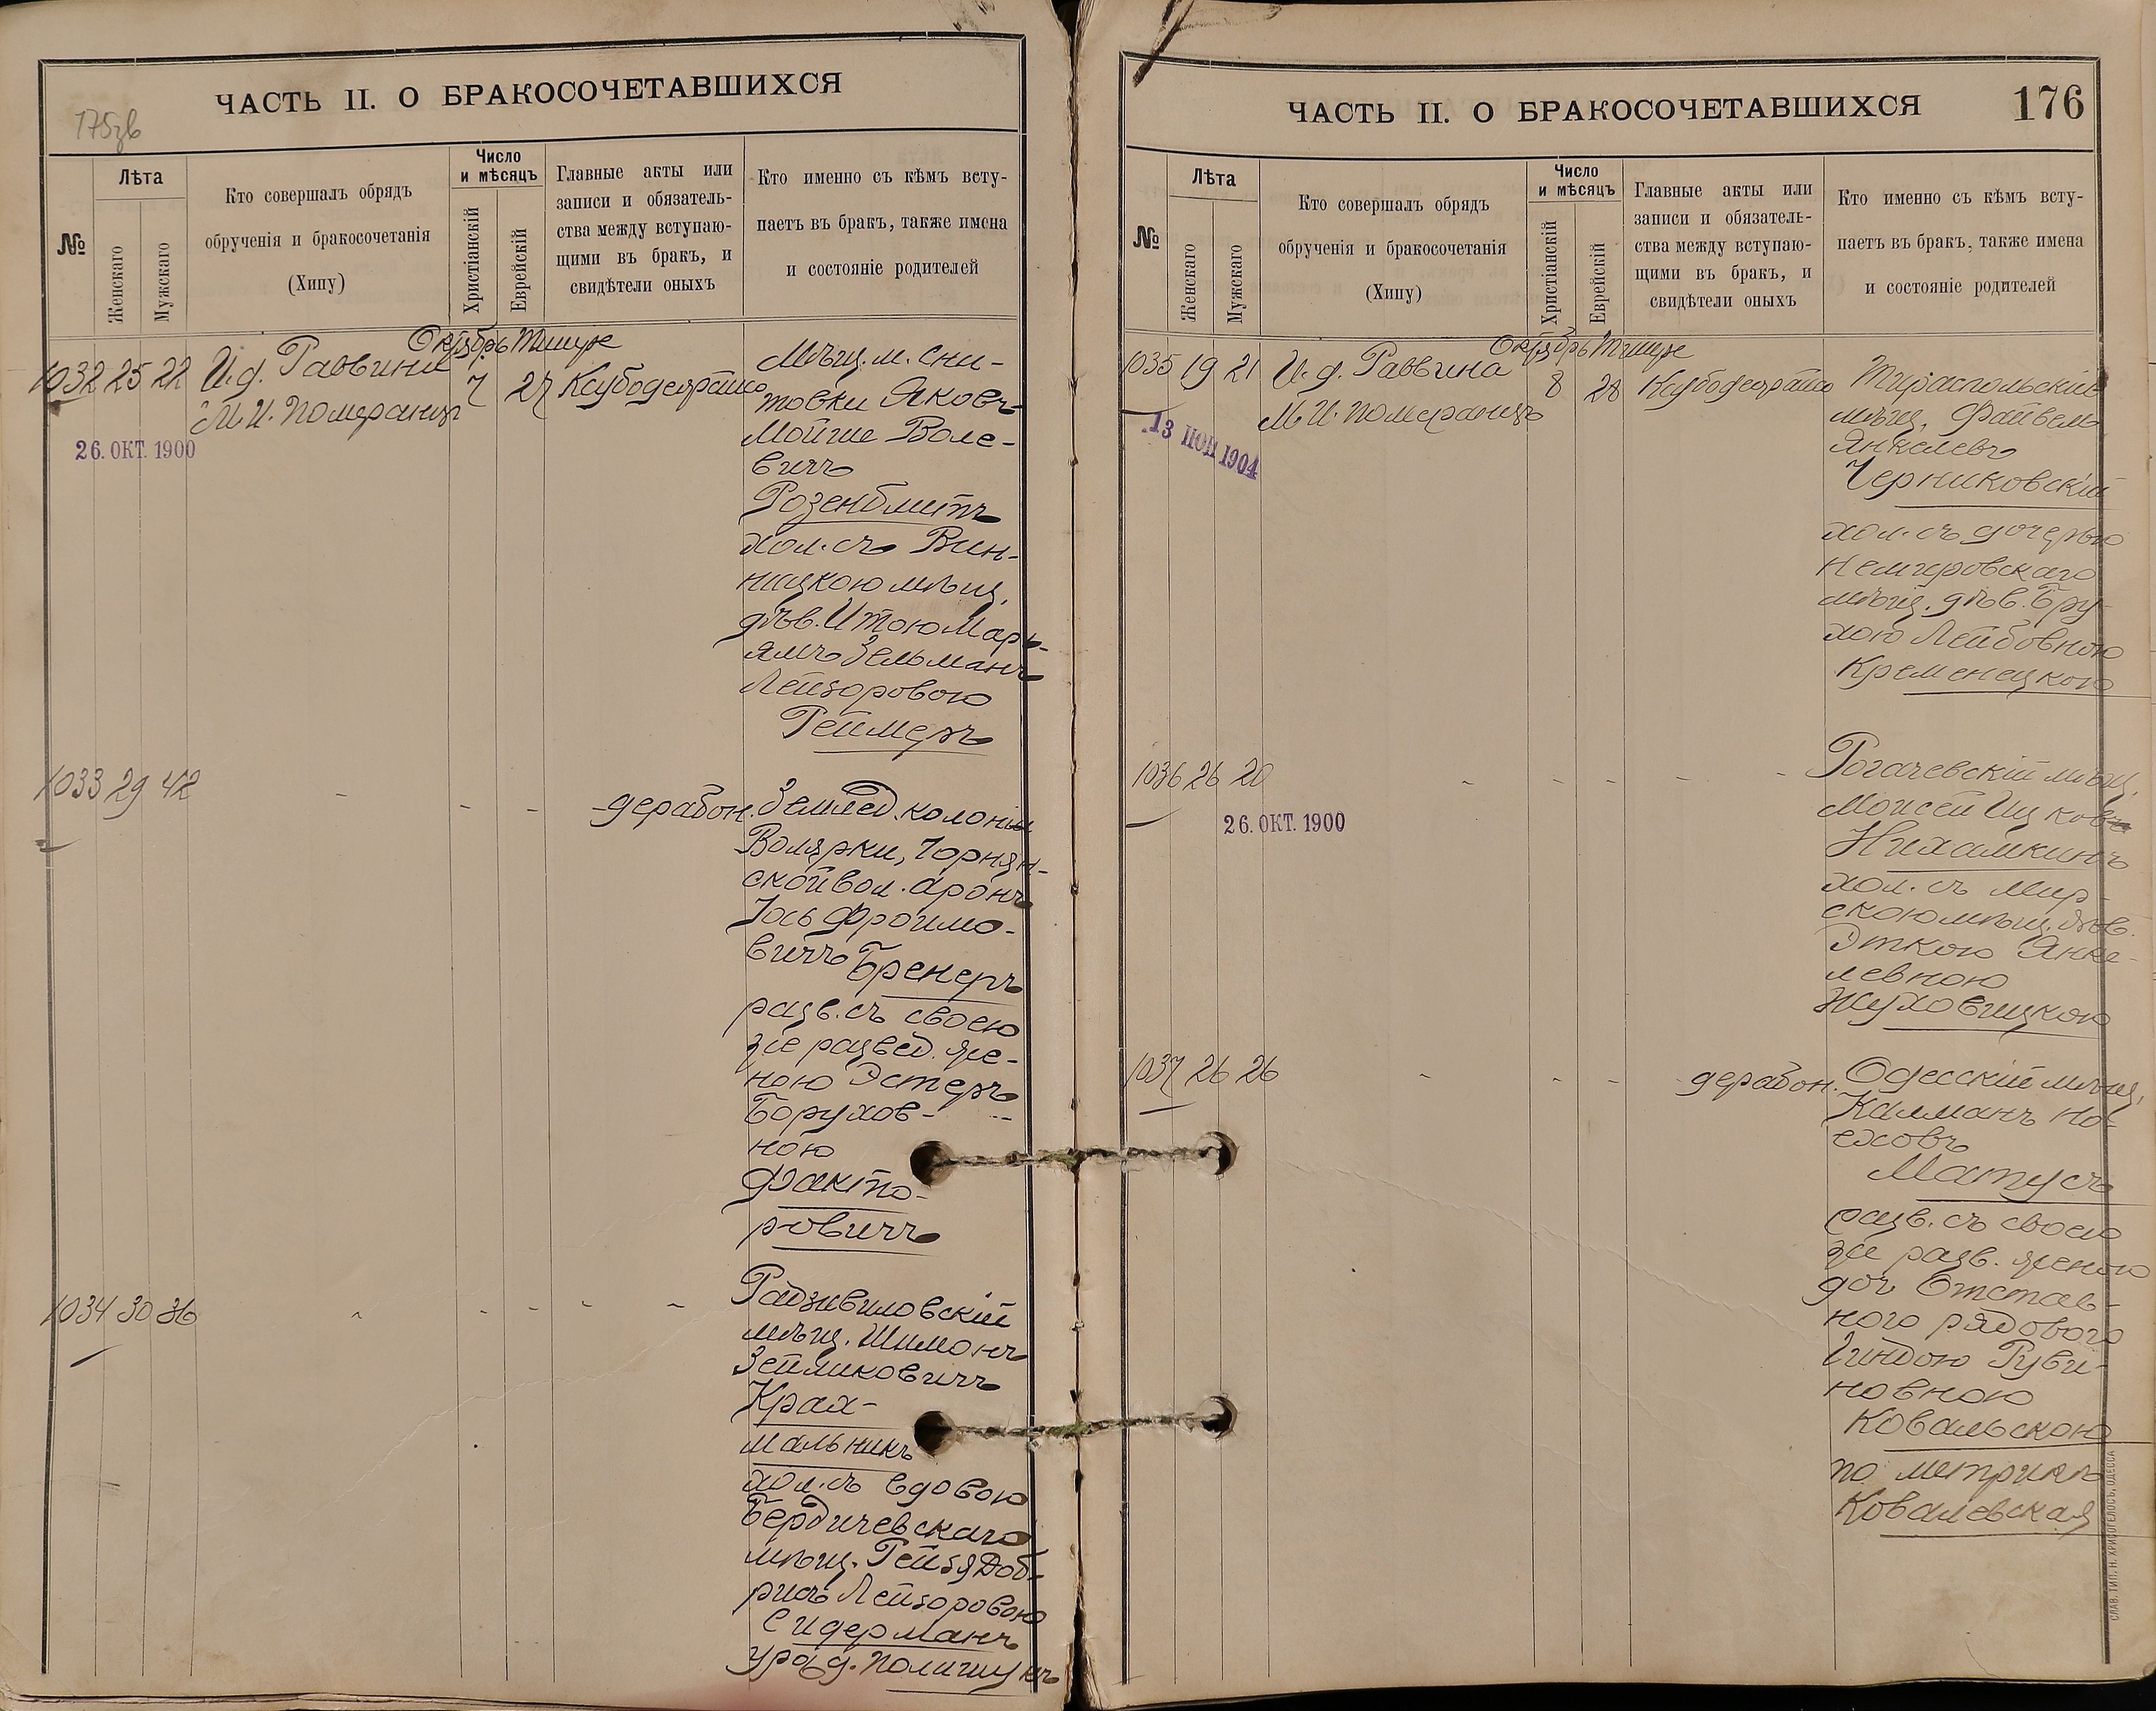 ЧАСТЬ II. О БРАКОСОЧЕТАВШИХСЯ
175зв
№
Лѣта
Женскаго
Мужскаго
Кто совершалъ обрядъ
обрученія и бракосочетанія
(Хипу)
Число
и мѣсяцъ
Христіанскій
Еврейскій
Главные акты или
записи и обязатель-
ства между вступаю-
щими въ бракъ, и
свидѣтели оныхъ
Кто именно съ кѣмъ всту-
паетъ въ бракъ, также имена
и состояніе родителей
Октябрь Тишре
1032 25 22 И.д. Раввина 7 27
М.И. Померанцъ
26. ОКТ. 1900
Мѣщ. м. Сни-
товки Яковъ
Мойше Воле-
вичъ
Розенблитъ
хол. съ Вин-
ницкою мѣщ.
дѣв. Итою Марь-
ямъ Зельманъ
Лейзоровою
Реймеръ
1033 29 42
дерабон. Землед. колоніи
Волярки, Горнян-
ской вол. Аронъ
Іось Фроимо-
вичъ Бренеръ
разв. съ своею
же развед. же-
ною Эстеръ
Борухов-
ною
Факто-
ровичъ
1034 30 36
Радзивиловскій
мѣщ. Шимонъ
Зейликовичъ
Крах-
мальникъ
хол. съ вдовою
Бердичевскаго
мѣщ. Рейзя Доб-
ришъ Лейзоровою
Сидерманъ
урожд. Полишукъ
ЧАСТЬ II. О БРАКОСОЧЕТАВШИХСЯ
176
№
Лѣта
Женскаго
Мужскаго
Кто совершалъ обрядъ
обрученія и бракосочетанія
(Хипу)
Число
и мѣсяцъ
Христіанскій
Еврейскій
Главные акты или
записи и обязатель-
ства между вступаю-
щими въ бракъ, и
свидѣтели оныхъ
Кто именно съ кѣмъ всту-
паетъ въ бракъ, также имена
и состояніе родителей
Октябрь Тишре
1035 19 21 И.д. Раввина 8 28
М.И. Померанцъ
13 1904
Тираспольскій
мѣщ. Файвель
Янкелевъ
Черниковскій
хол. съ дочерью
Немировскаго
мѣщ. дѣв. Бру-
хою Лейбовною
Кременецкою
1036 26 20
26. ОКТ. 1900
Рогачевскій мѣщ.
Моисей Ицковъ
Нихамкинъ
хол. съ Мир-
скою мѣщ. дѣв.
Эткою Янке-
левною
Жуховицкою
1037 26 26
дерабон. Одесскій мѣщ.
Калманъ Но-
еховъ
Матусъ
разв. съ своею
же разв. женою
доч. Отстав-
ного рядового
Гиндою Руви-
новною
Ковальскою
по метрикѣ
Ковалевская
СЛАВ. ТИП. Н. ХРИСОГЕЛОСЪ, ОДЕССА